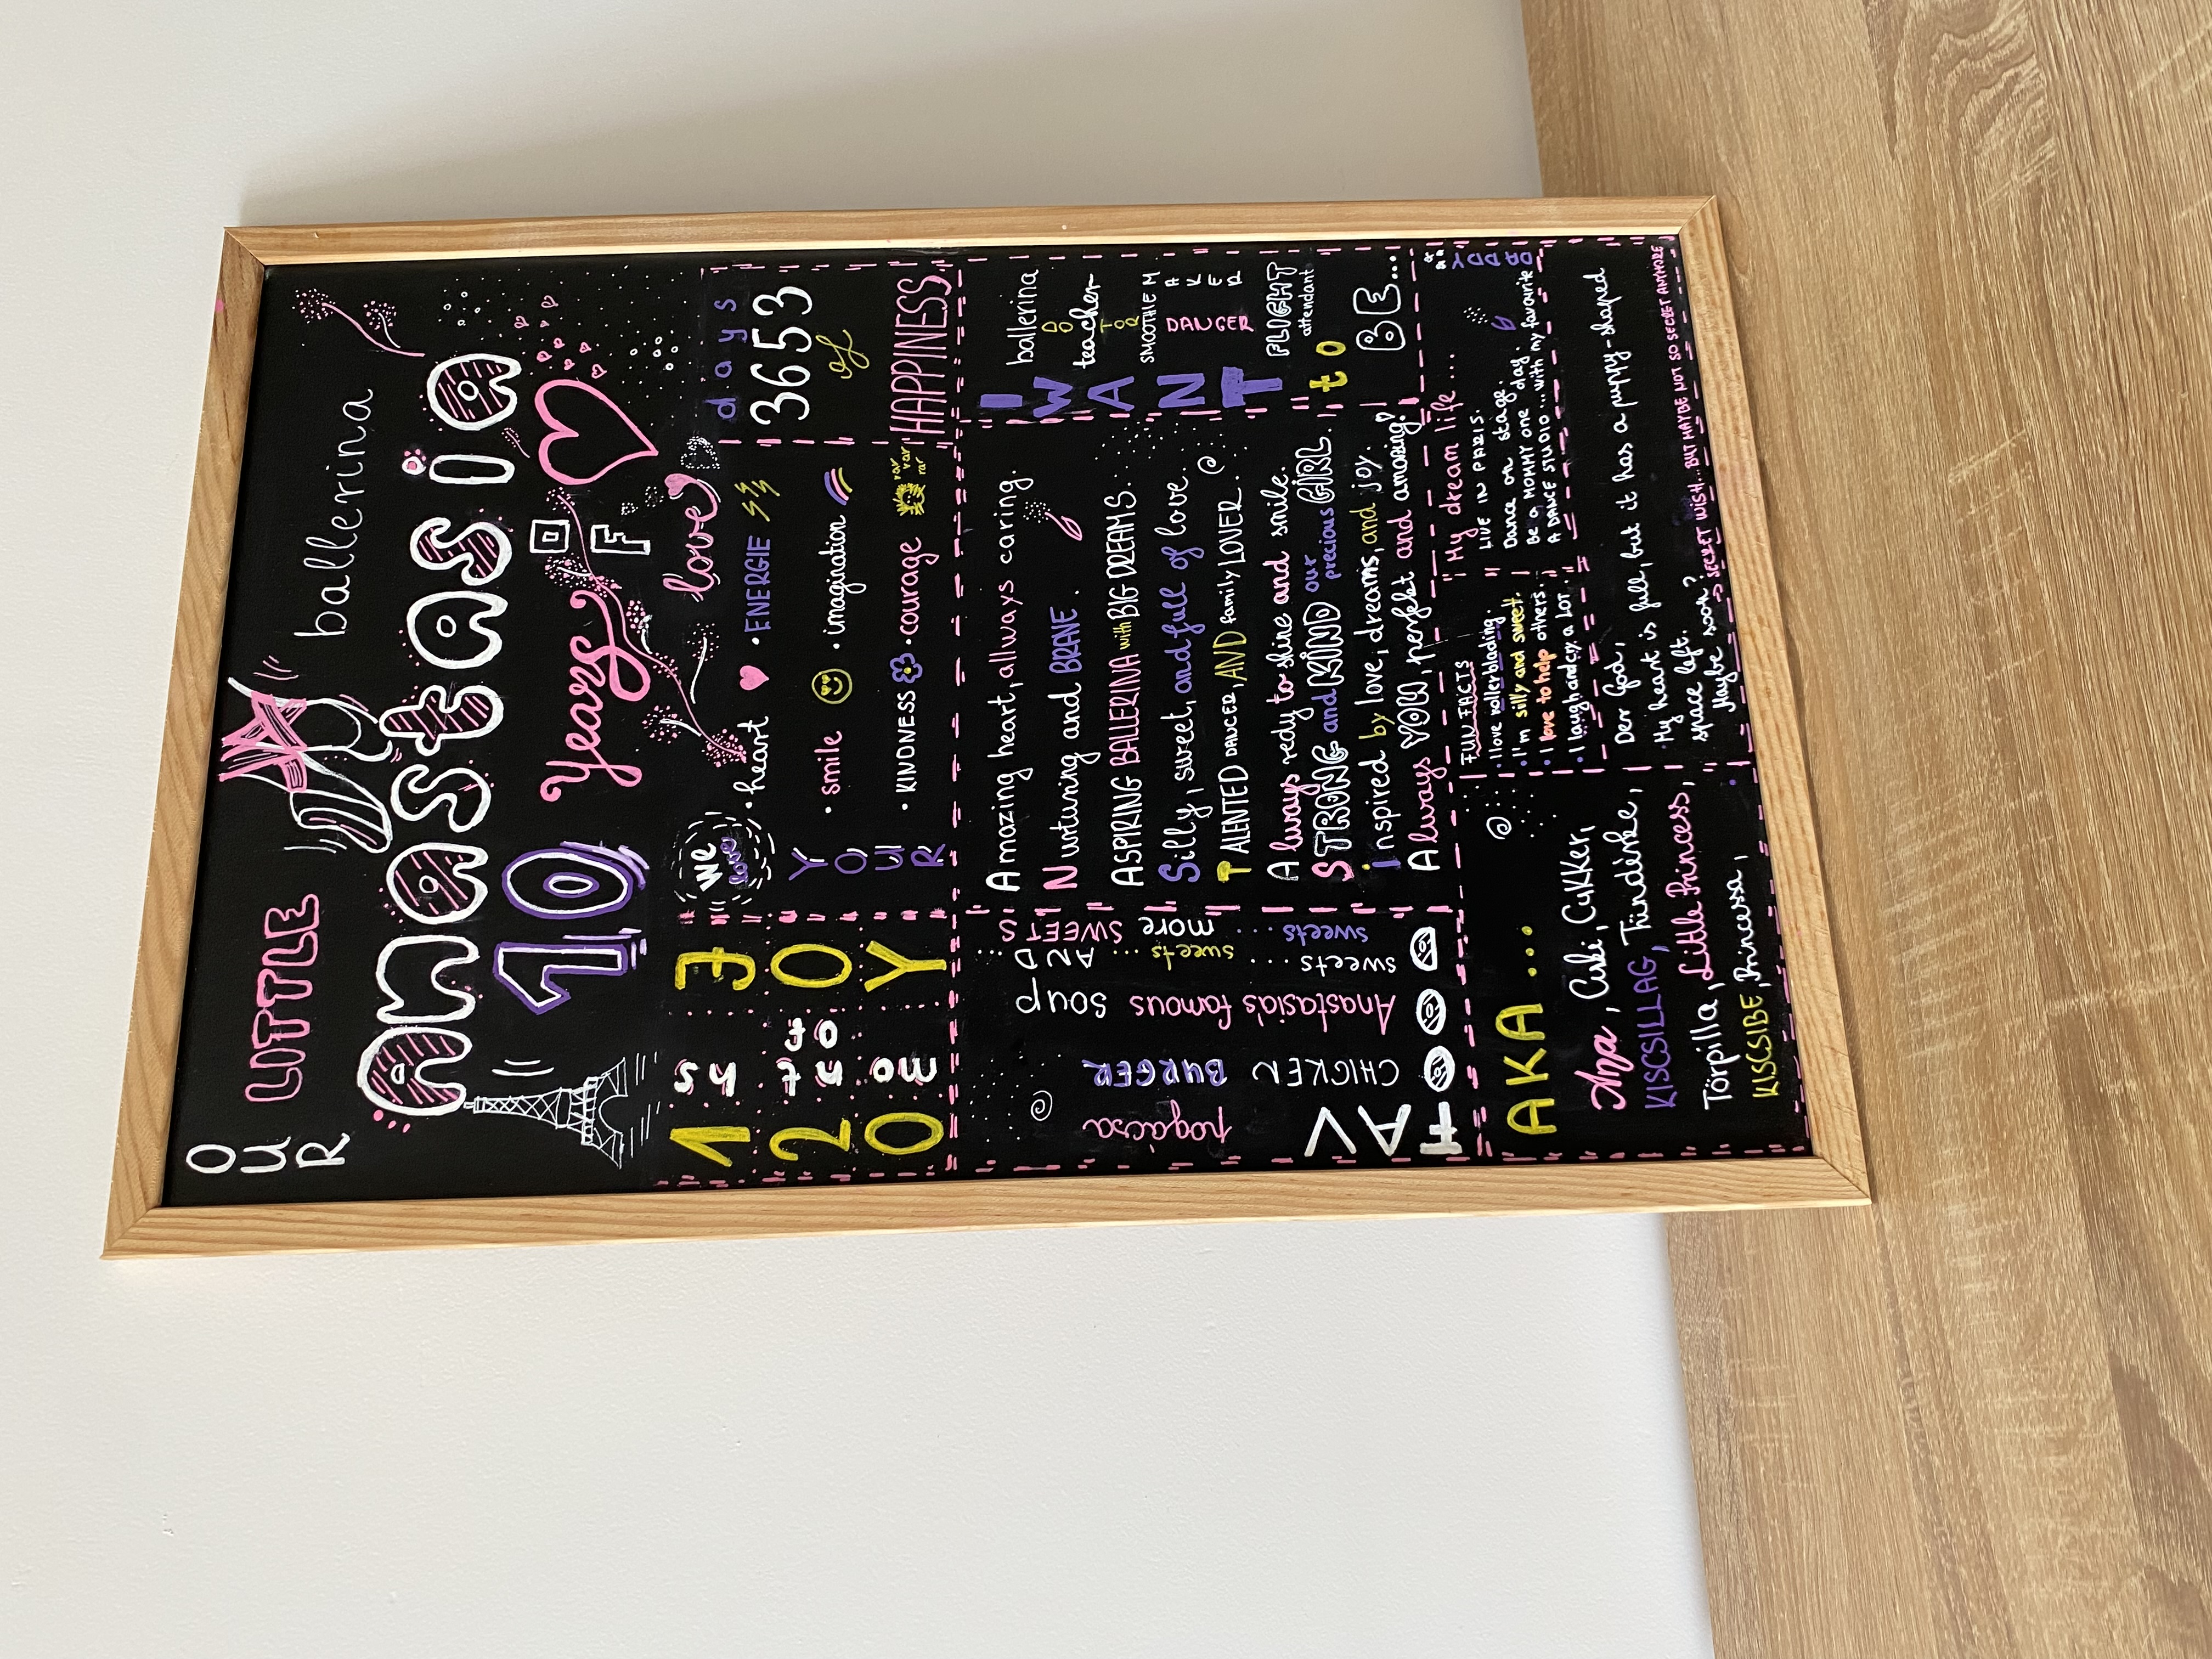 OUR
LITTLE
ballerina
Anastasia
10
Years
OF
love
120
months
of
JOY
we
love
YOUR
• heart
• ENERGIE
• smile
• imagination
• KINDNESS
• courage
rar
rar
rar
days
3653
of
HAPPINESS
FAV
pogácsa
CHICKEN BURGER
Anastasia's famous soup
sweets ... sweets ... AND ...
sweets ... more SWEETS
Amazing heart, always caring.
Nurturing and BRAVE.
ASPIRING BALLERINA with BIG DREAMS.
Silly, sweet, and full of love.
TALENTED DANCER, AND family LOVER.
Always redy to shine and smile.
STRONG and KIND our precious GIRL.
inspired by love, dreams, and joy.
Always YOU, perfekt and amazing!
I WANT
to
BE...
ballerina
DOTOR
teacher
SMOOTHIE MAKER
DANGER
FLIGHT
attendant
AKA...
Ana, Csibi, Cukker,
KISCSILLAG, Tündérke,
Törpilla, Little Princess,
KISCSIBE, Princessa,
FUN FACTS
• I love rollerblading.
• I'm silly and sweet.
• I love to help others.
• I laugh and cry a LOT.
My dream life...
LIVE IN PARIS.
Dance on stage.
Be a MOMMY one day.
A DANCE STUDIO ... with my favourite
DADDY
Derr God,
My heart is full, but it has a puppy-shaped
space left.
Maybe soon?
→ SECRET WISH... BUT MAYBE NOT SO SECRET ANYMORE